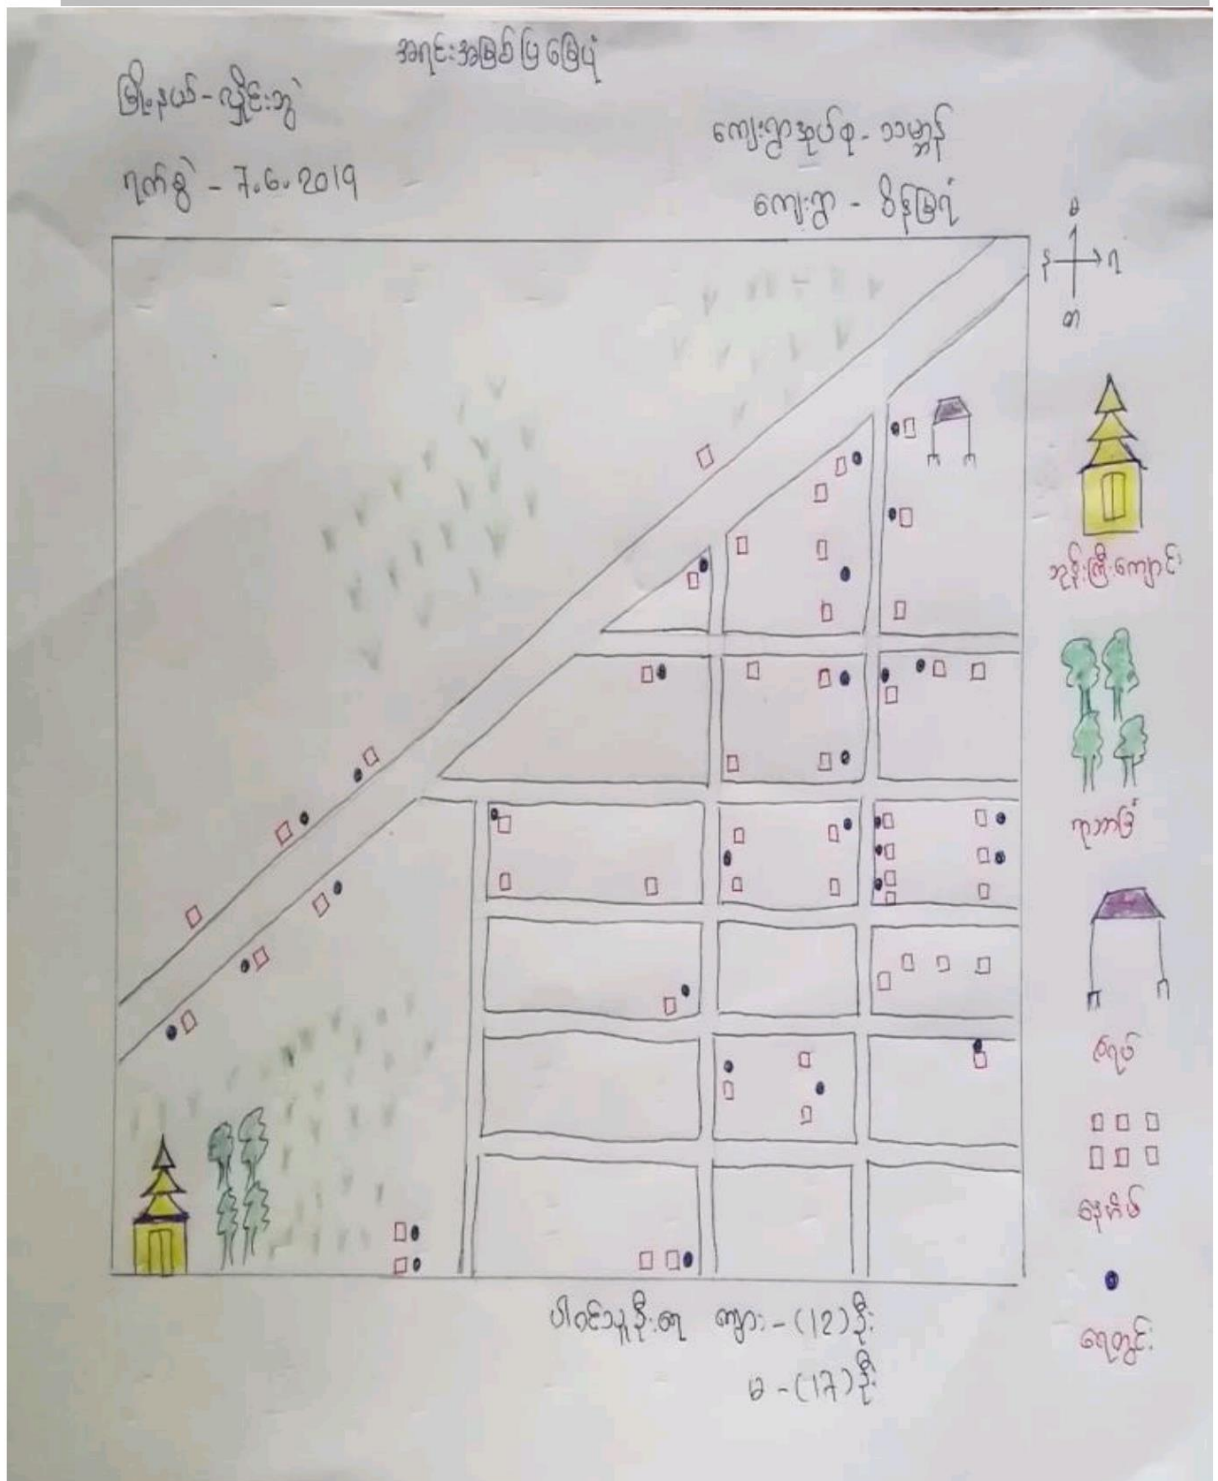 အရင်းအမြစ်ပြမြေပုံ
မြို့နယ် - လှိုင်းဘွဲ
ရက်စွဲ - 7.6.2019
ကျေးရွာအုပ်စု -
ကျေးရွာ - စိန်မြရံ
မ
န ရ
တ
ဘုန်းကြီးကျောင်း
ရာဘာခြံ
ဇရပ်
နေအိမ်
ရေတွင်း
ပါဝင်သူဦးရေ ကျား - (12) ဦး
မ - (17) ဦး